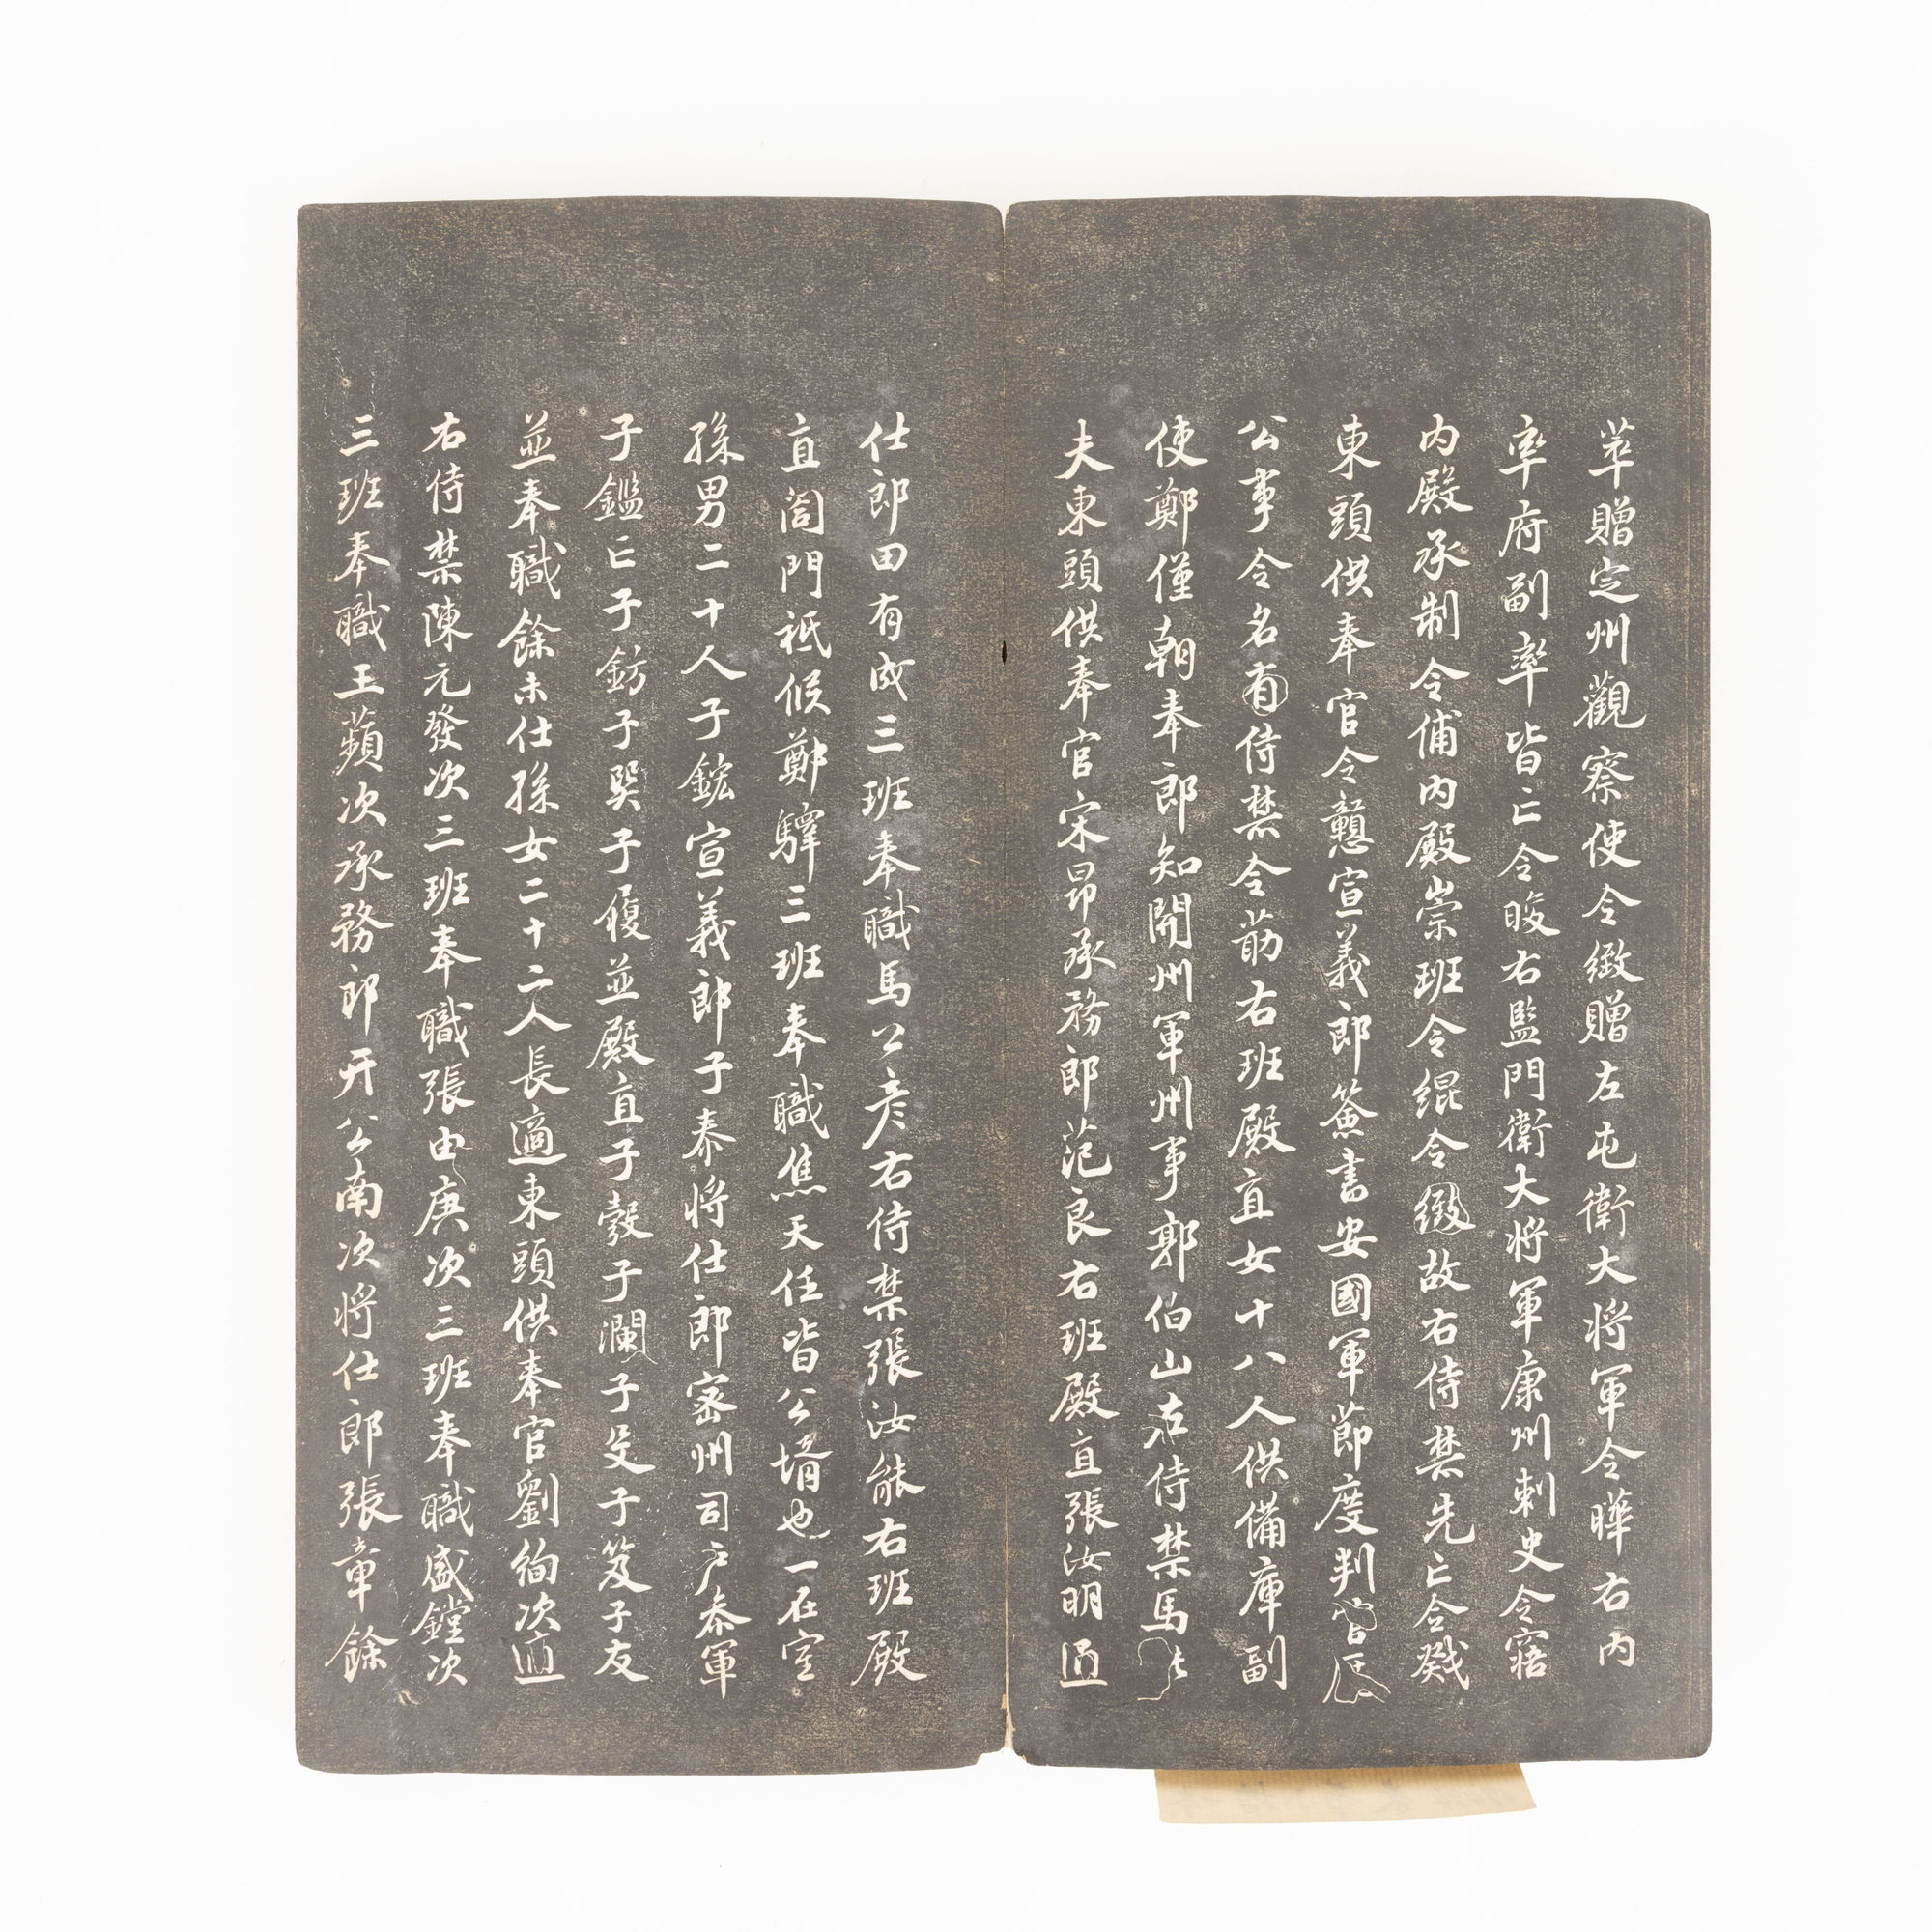 萃贈定州觀察使令緻贈左屯衛大将軍令曄右内
率府副率皆亡令晙右監門衛大将軍康州刺史令寤
内殿承制令俌内殿崇班令緄令緻故右侍禁先亡令戣
東頭供奉官令戇宣義郎簽書安國軍節度判官
公事令名右侍禁令莇右班殿直女十八人供備庫副
使鄭僅朝奉郎知開州軍州事郭伯山左侍禁馬
夫東頭供奉官宋昂承務郎范良右班殿直張汝明適
仕郎田有成三班奉職馬公彦右侍禁張汝能右班殿
直閤門祗候鄭驛三班奉職焦天任皆公壻也一在室
孫男二十人子鋐宣義郎子泰将仕郎密州司户叅軍
子鑑亡子鈁子巺子履並殿直子瑴子瀾子旻子笈子友
並奉職餘未仕孫女二十二人長適東頭供奉官劉絢次適
右侍禁陳元發次三班奉職張由庚次三班奉職盛鏜次
三班奉職王蘋次承務郎开公南次将仕郎張章餘